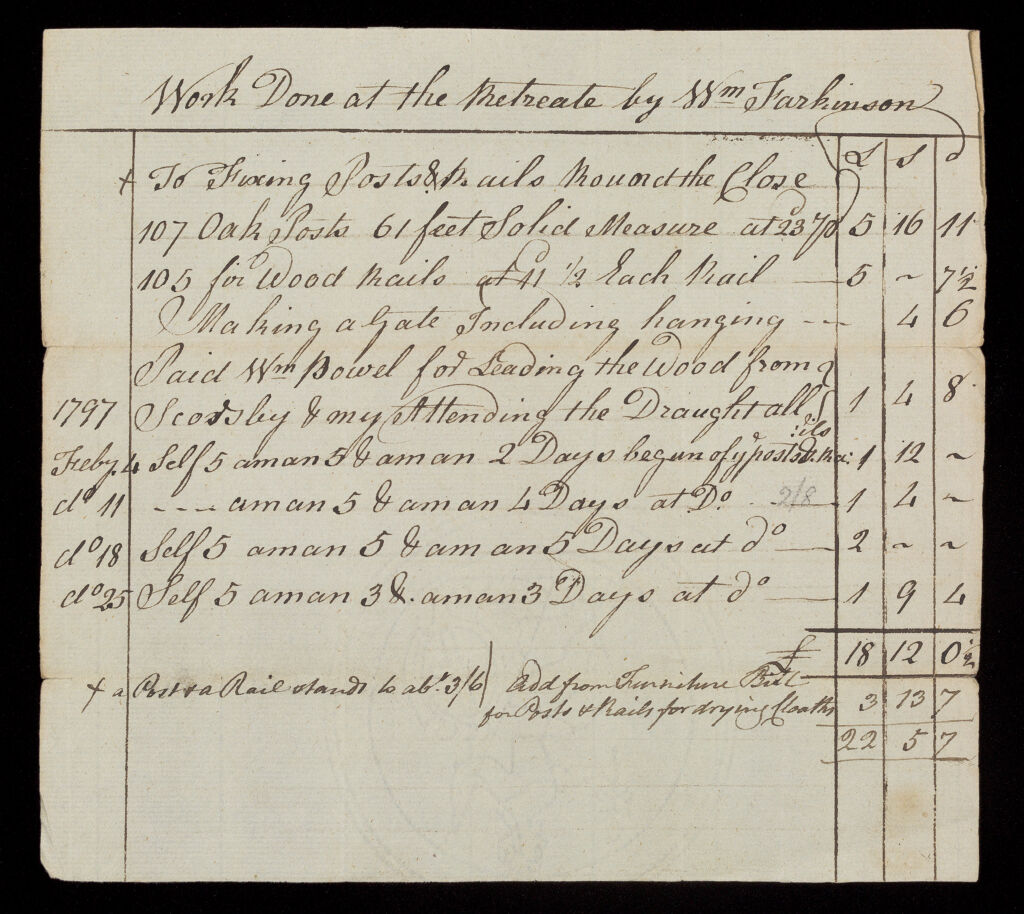 Work Done at the Retreate by Wm Farkinson
£ S d
+ To Fixing Posts & Rails Round the Close
107 Oak Posts 61 feet Solid Measure at 23d 5 16 11
105 for Wood Rails at 11d 1/2 Each Rail — 5 ~ 7 1/2
Making a Gate Including hanging --- 4 6
Paid Wm Powel for Leading the Wood from
1797 Scorsby & my Attending the Draught all 1 4 8
Feby. 4 Self 5 a man 5 & a man 2 Days begun of ye posts & Ra:ils 1 12 ~
do 11 ---- a man 5 & a man 4 Days at Do. 2/8 — 1 4 ~
do 18 Self 5 a man 5 & a man 5 Days at do — 2 ~ ~
do 25 Self 5 a man 3 & a man 3 Days at do — 1 9 4
£ 18 12 0 1/2
+ a Post & a Rail stands to abt 3/6 Add from Furniture Bill
for Posts & Rails for drying Cloaths 3 13 7
22 5 7